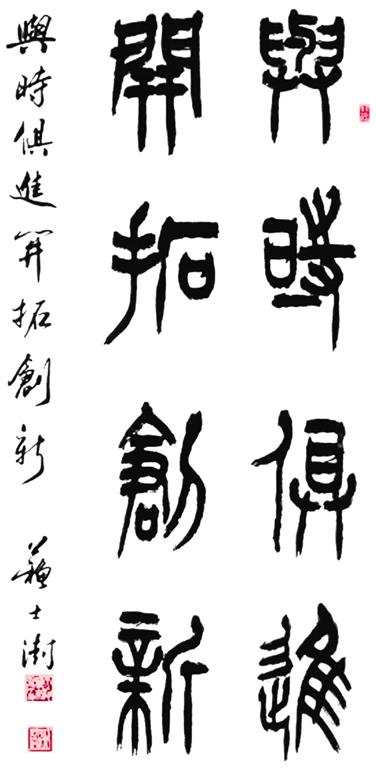 與時俱進
開拓創新
與時俱進開拓創新 蘇士澍